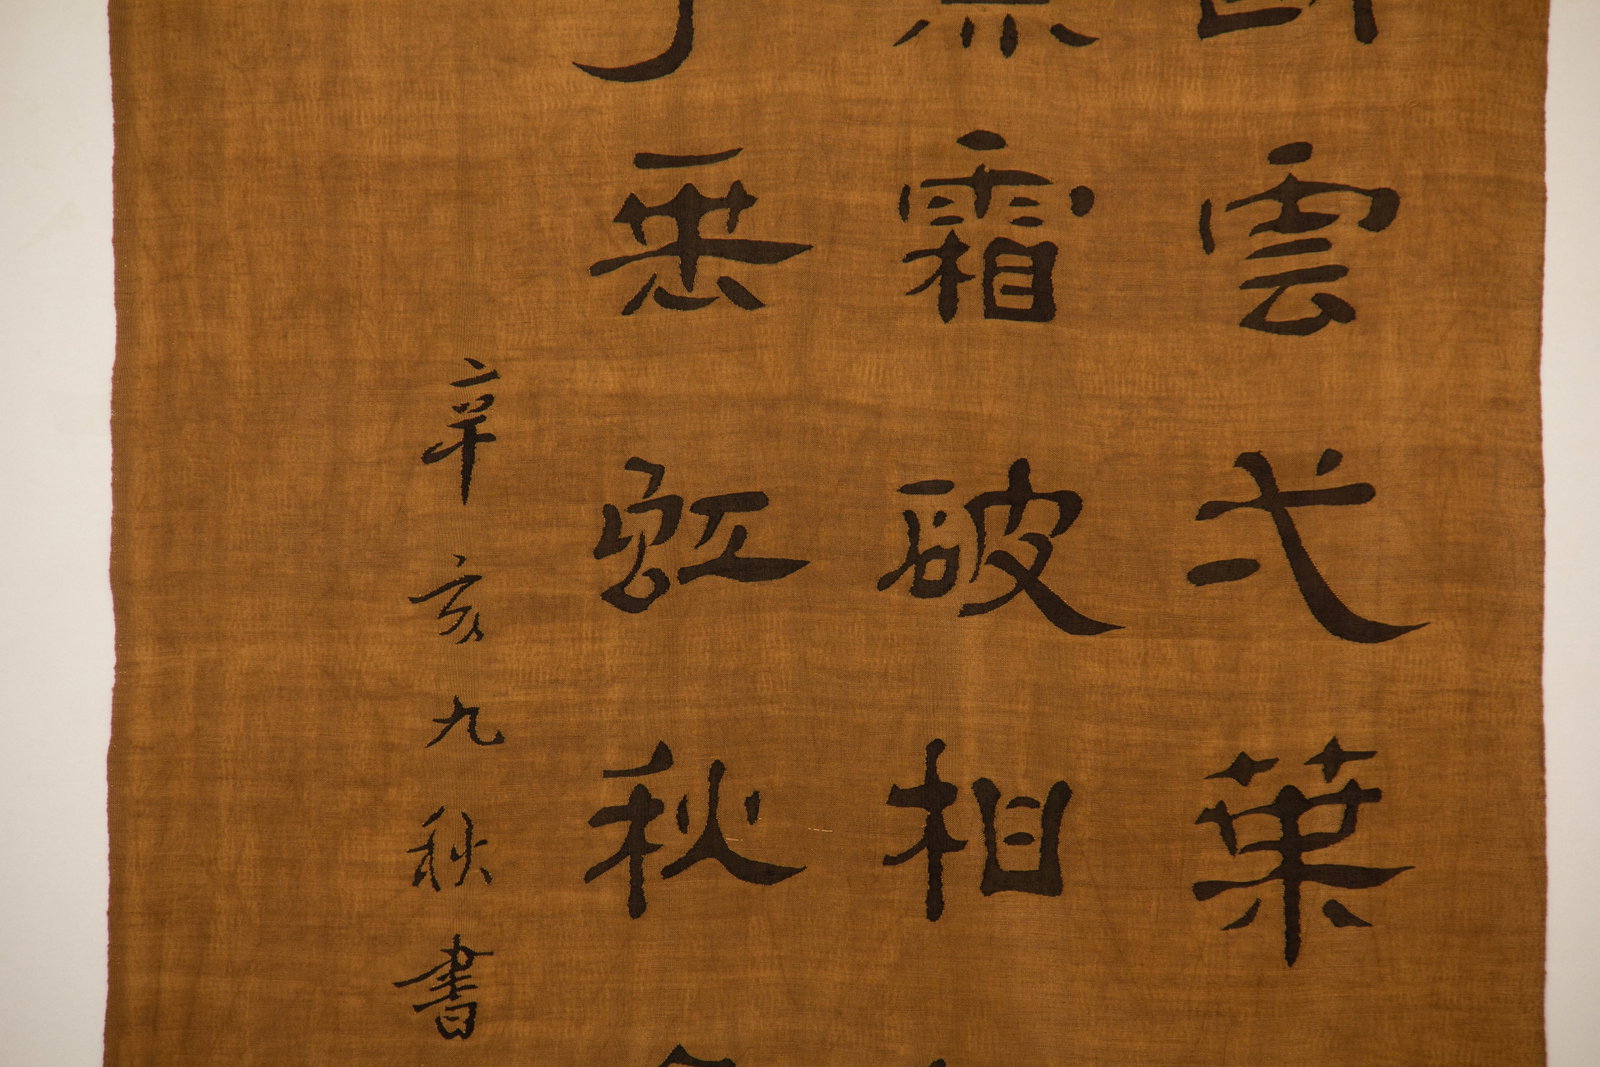 雲弌葉
霜破相
垂虹秋
辛亥九秋書